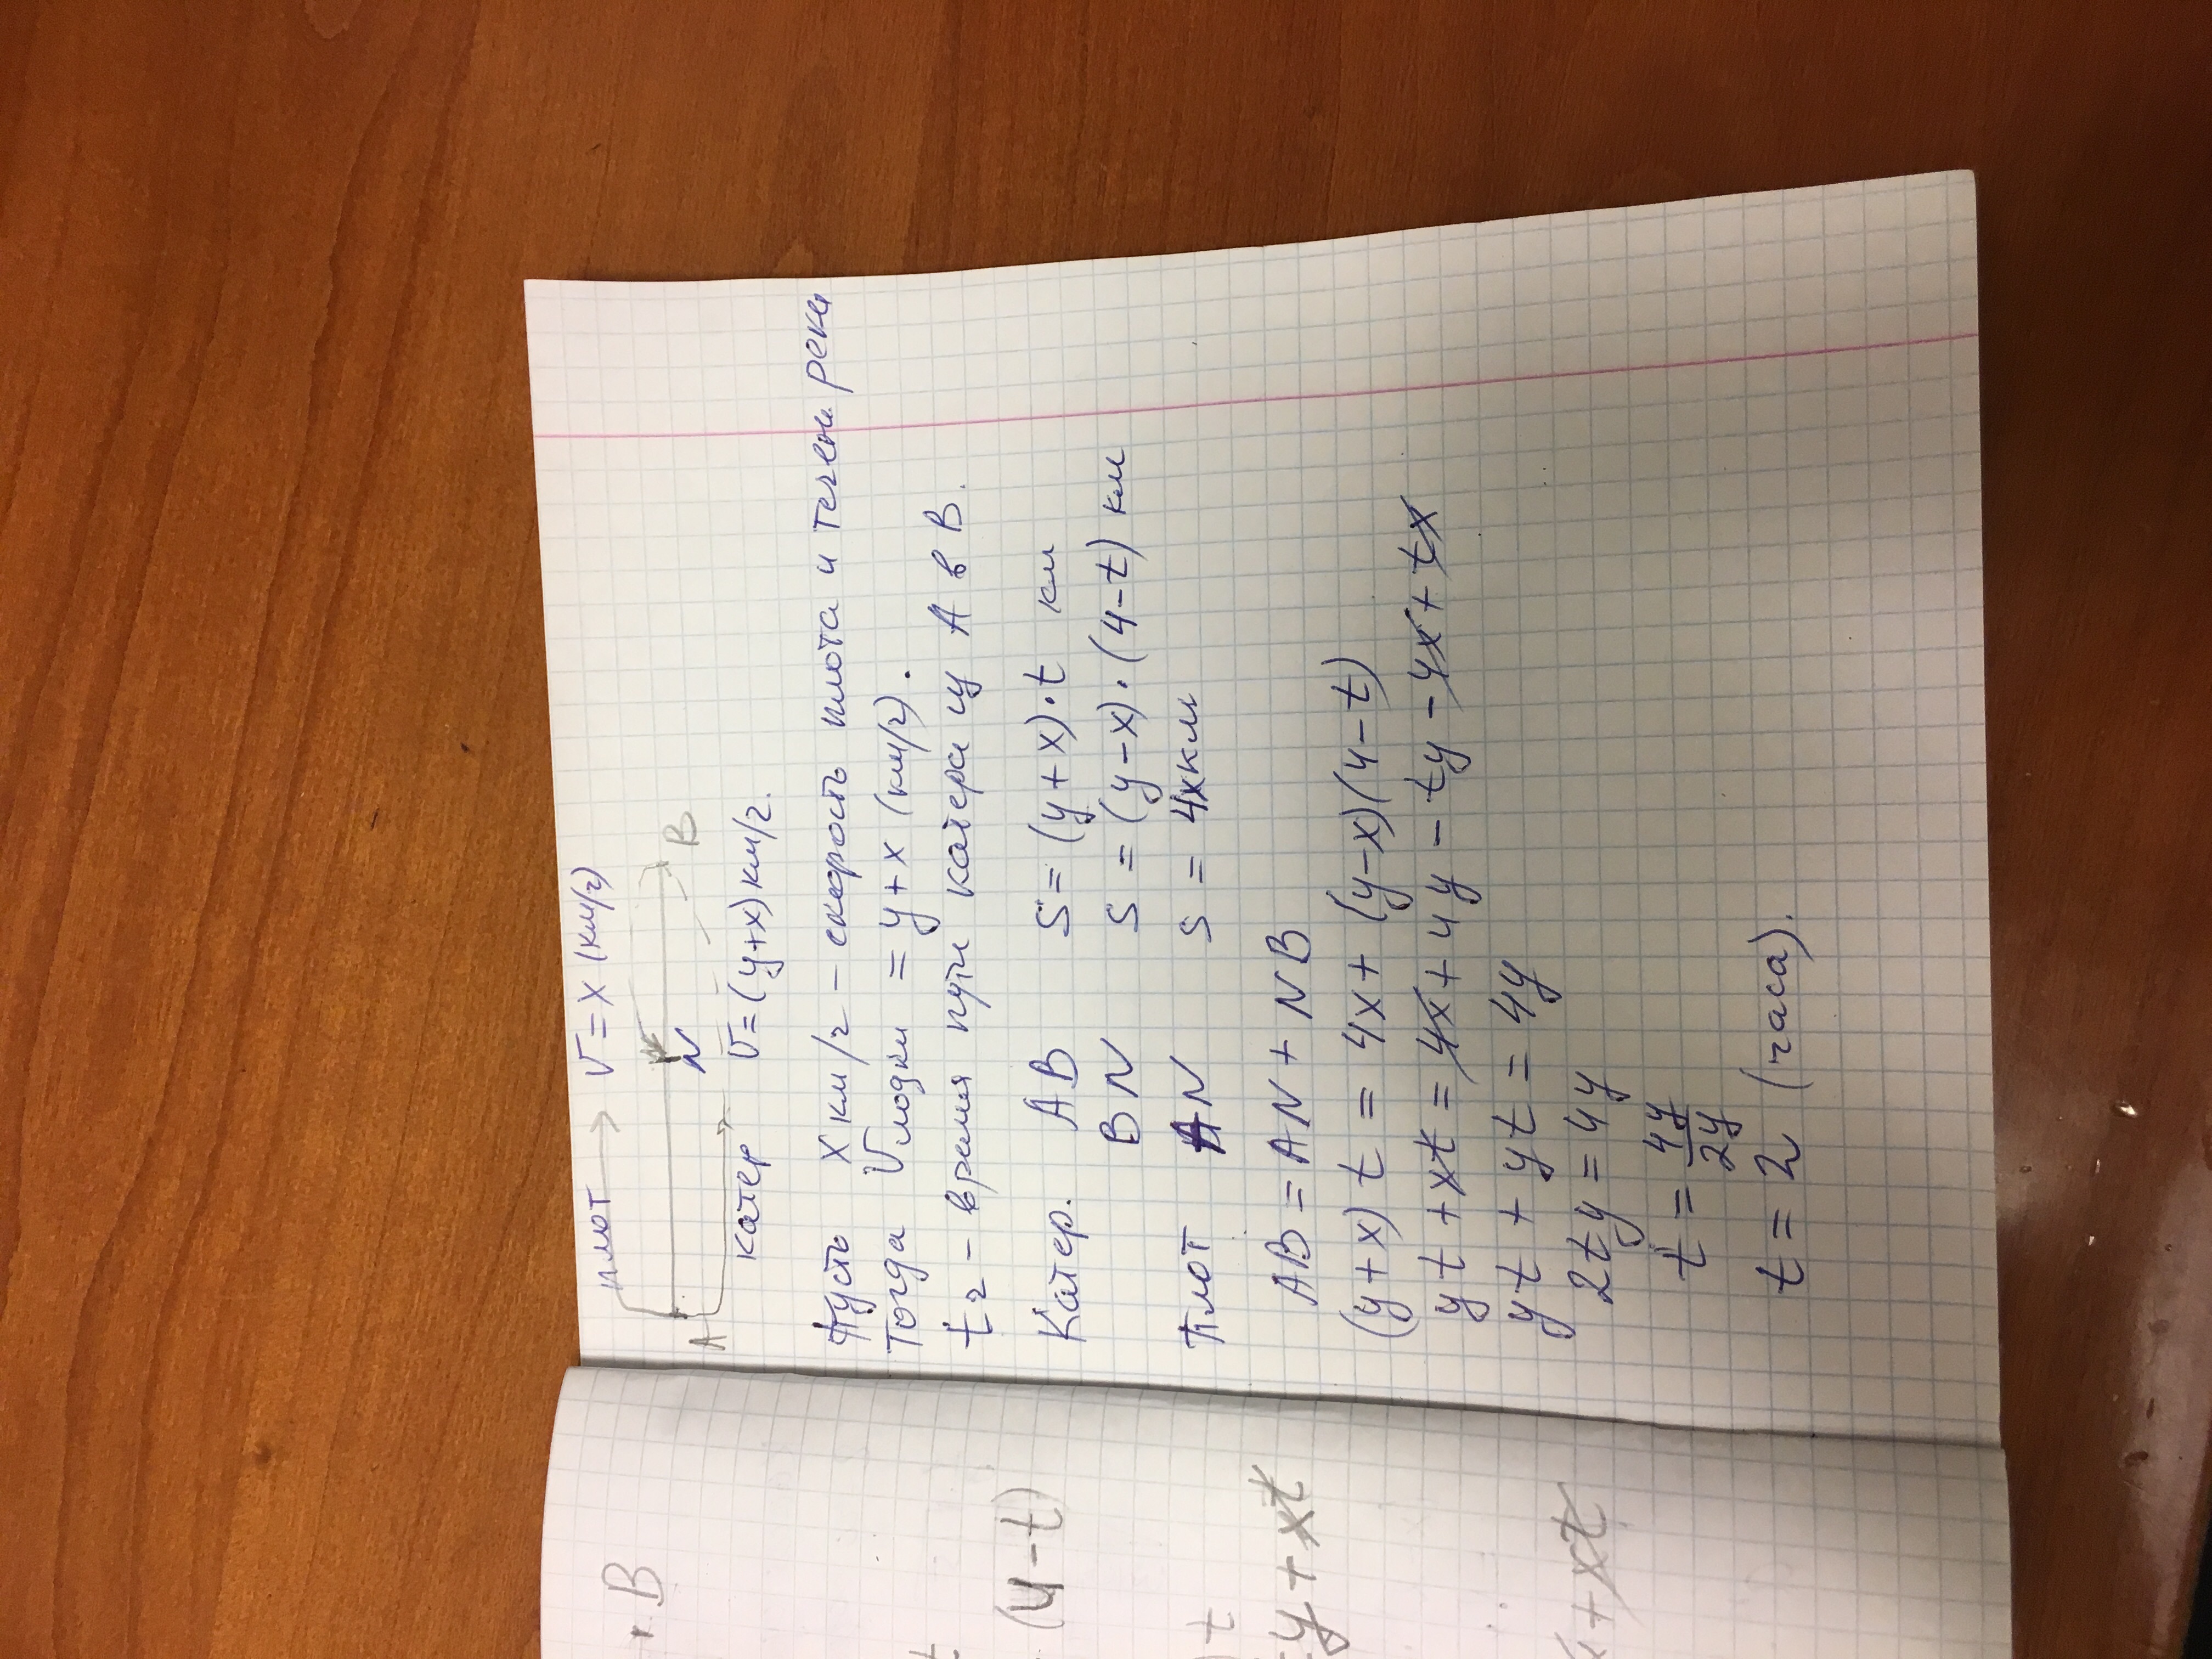 плот → V = x (км/ч)
A N B
катер V = (y+x) км/ч.
Пусть x км/ч – скорость плота и течени реки
Тогда Vлодки = y + x (км/ч).
t ч – время пути катера из A в B.
Катер. AB S = (y + x) · t км
BN S = (y – x) · (4 – t) км
Плот AN S = 4x км
AB = AN + NB
(y + x) t = 4x + (y – x)(4 – t)
yt + xt = 4x + 4y – ty – 4x + tx
yt + yt = 4y
2ty = 4y
t = 4y/2y
t = 2 (часа).
B
(4 – t)
t
y + xt
+ xt